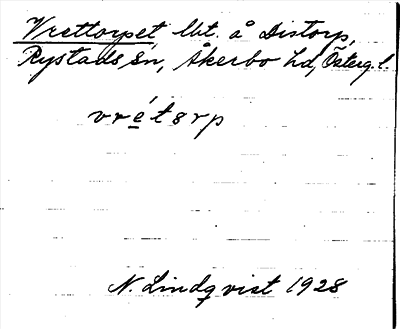 Vrettorpet lht. å Distorp,
Rystads sn, Åkerbo hd, Österg. l.
vrétsrp
N. Lindqvist 1928